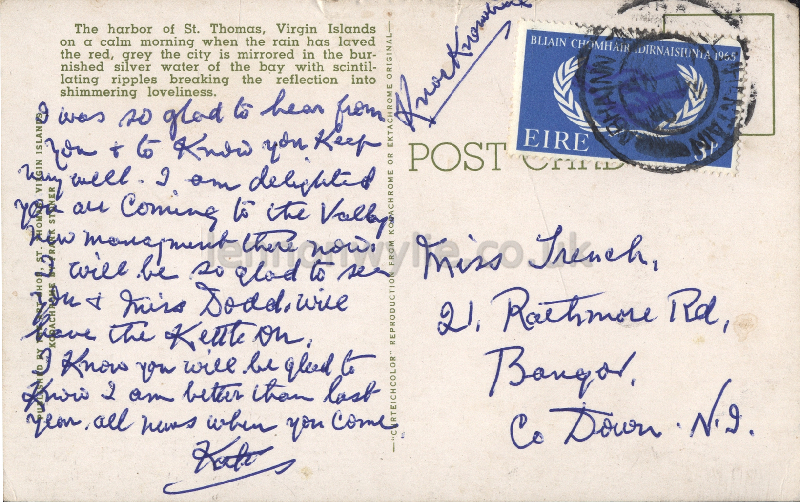 The harbor of St. Thomas, Virgin Islands
on a calm morning when the rain has laved
the red, grey the city is mirrored in the bur-
nished silver water of the bay with scintil-
lating ripples breaking the reflection into
shimmering loveliness.
I was so glad to hear from
you & to know you keep
very well. I am delighted
you are coming to the Valley
New managment there now.
I will be so glad to see
you & Miss Dodd, will
have the Kettle on.
I know you will be glad to
know I am better than last
year. all news when you come
Kate
"CURTEICHCOLOR" REPRODUCTION FROM KODACHROME OR EKTACHROME ORIGINAL
POST CARD
BLIAIN CHOMHAR IDIRNAISIUNTA 1965
EIRE
Miss French,
21, Rathmore Rd,
Bangor,
Co Down. N.I.
lennonwylie.co.uk